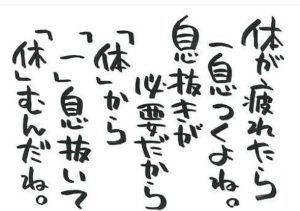 体が疲れたら
一息つくよね。
息抜きが
必要だから
「体」から
「一」息抜いて
「休」むんだね。